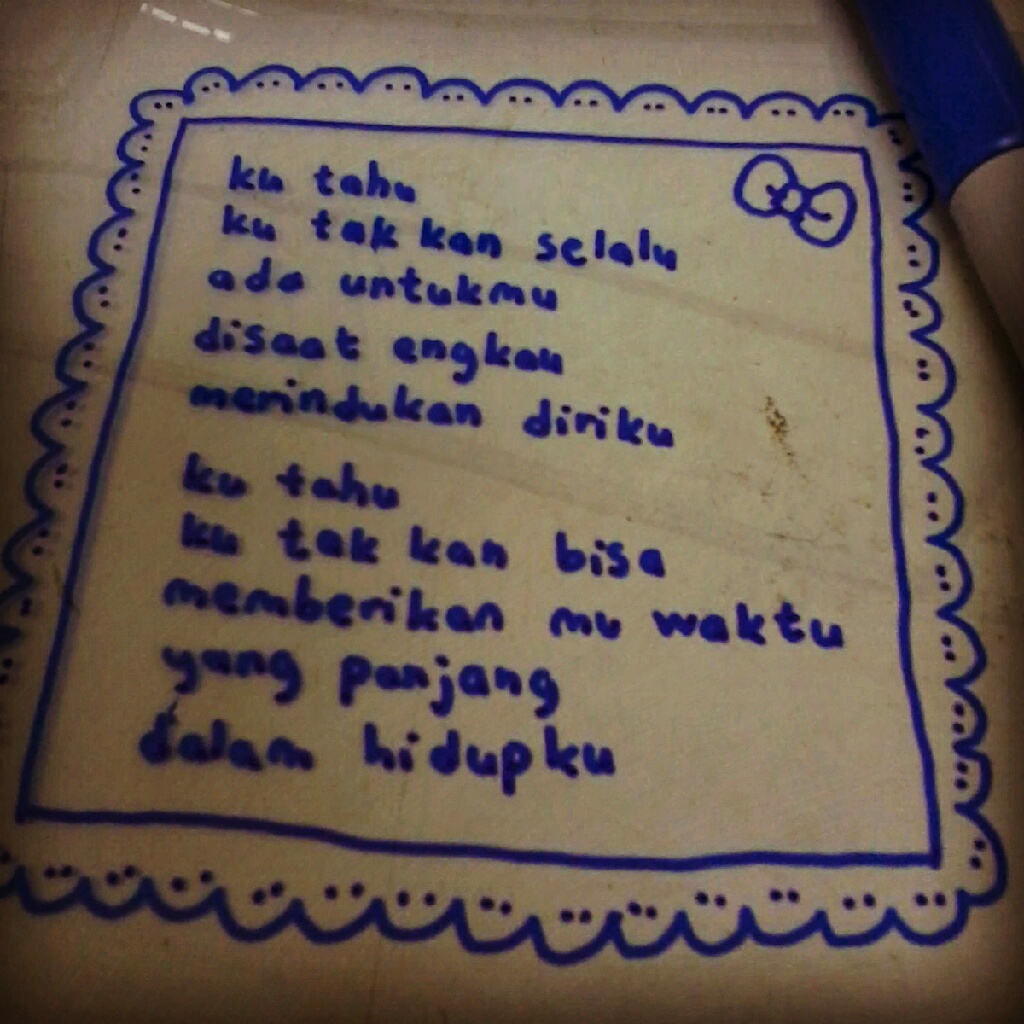 ku tahu
ku tak kan selalu
ada untukmu
disaat engkau
merindukan diriku
ku tahu
ku tak kan bisa
memberikan mu waktu
yang panjang
dalam hidupku